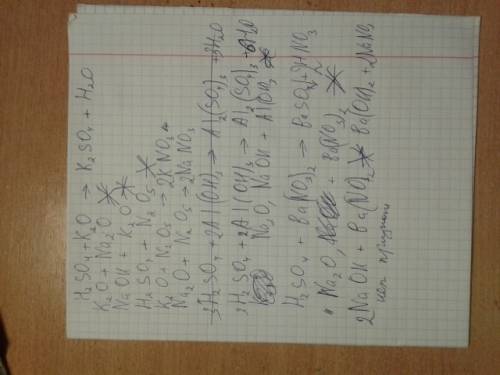 H₂SO₄ + K₂O → K₂SO₄ + H₂O
K₂O + Na₂O
NaOH + K₂O
H₂SO₄ + N₂O₅
K₂O + N₂O₅ → 2KNO₃
Na₂O + N₂O₅ → 2NaNO₃
3H₂SO₄ + 2Al(OH)₃ → Al₂(SO₄)₃ + 3H₂O
3H₂SO₄ + 2Al(OH)₃ → Al₂(SO₄)₃ + 6H₂O
Na₂O, NaOH + Al(OH)₃
H₂SO₄ + Ba(NO₃)₂ → BaSO₄ + 2HNO₃
Na₂O, + Ba(NO₃)₂
2NaOH + Ba(NO₃)₂ Ba(OH)₂ + 2NaNO₃